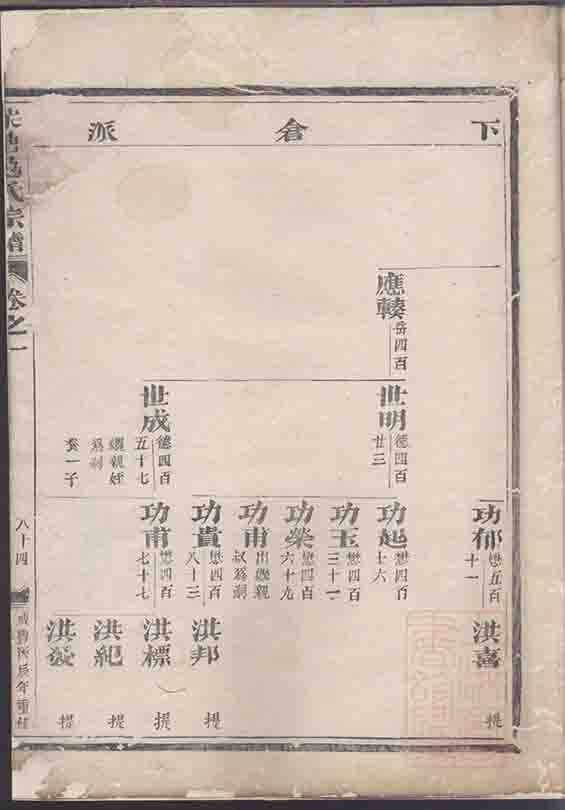 下倉派
應轅
岳四百
世明
德四百
廿三
世成
德四百
五十七
繼親姪
為嗣
養一子
功郁
懋五百
十一
功起
懋四百
十六
功玉
懋四百
三十一
功榮
懋四百
六十九
功甫
出繼親
叔為嗣
功貴
懋四百
八十三
功甫
懋四百
七十七
洪喜
提
洪邦
提
洪標
提
洪紀
提
洪
提
氏宗譜
卷之一
八十四
年重修